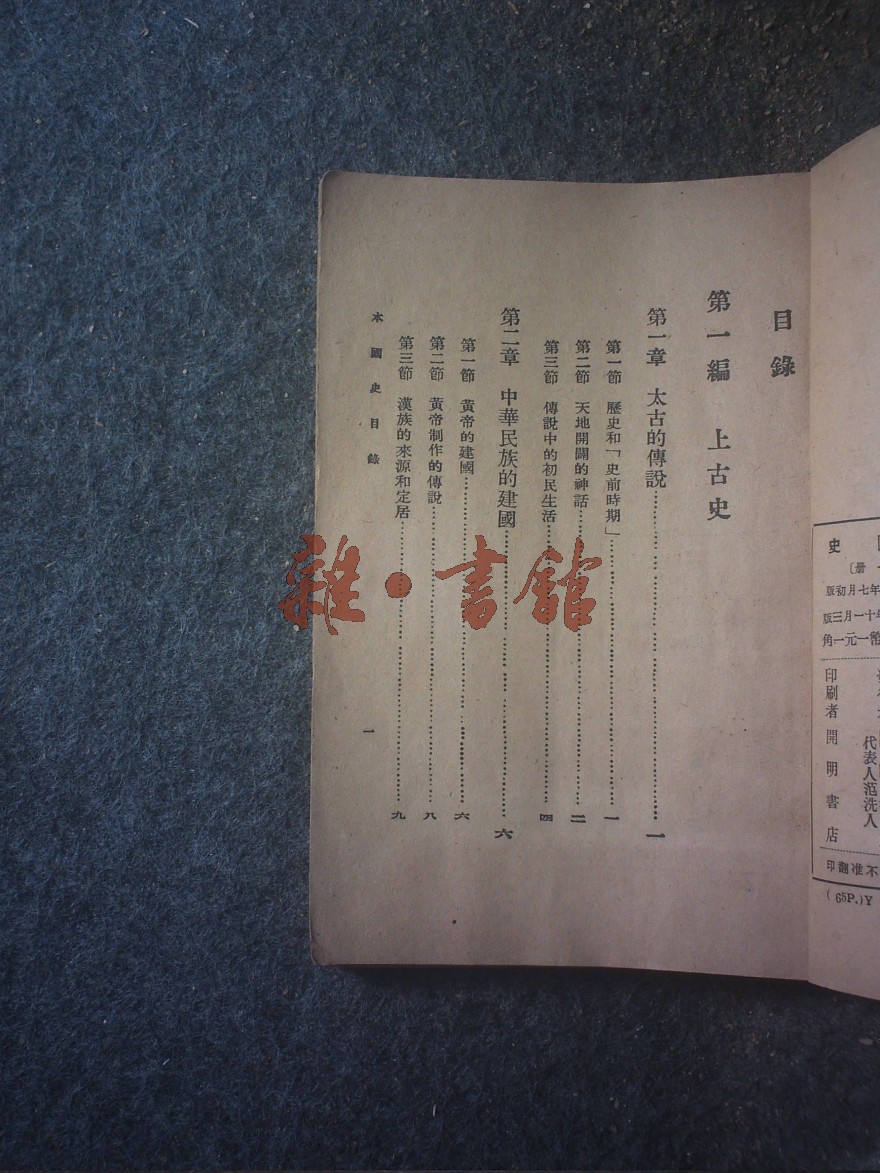 史
册〕
年七月初版
十一月三版
幣一元一角
代表人范洗人
印刷者開明書店
不准翻印
(65P.)Y
目錄
第一編　上古史
第一章　太古的傳說……一
第一節　歷史和「史前時期」……一
第二節　天地開闢的神話……二
第三節　傳說中的初民生活……四
第二章　中華民族的建國……六
第一節　黃帝的建國……六
第二節　黃帝制作的傳說……八
第三節　漢族的來源和定居……九
本國史目錄　一
雜·書館